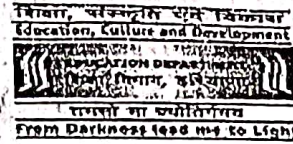 शिक्षा, संस्कृति एवं विकास
Education, Culture and Development
EDUCATION DEPARTMENT
शिक्षा विभाग,
तमसो मा ज्योतिर्गमय
From Darkness lead me to Light